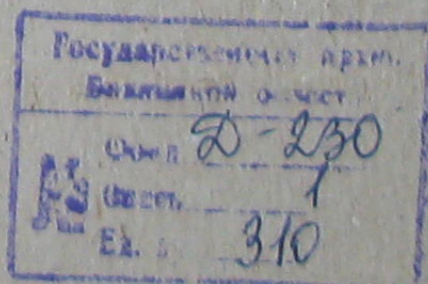 Государственный архив
Винницкой област
№ Фонд Д-230
Опись 1
Ед. 310